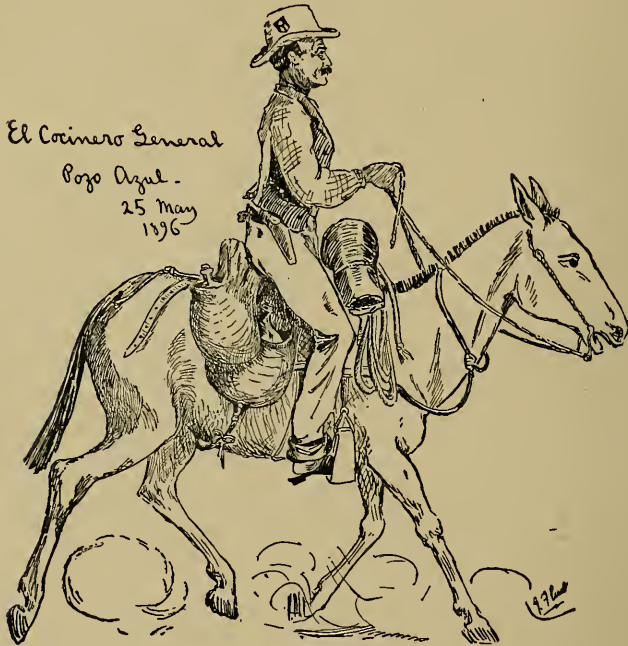 El Cocinero General
Pozo Azul.
25 May
1896